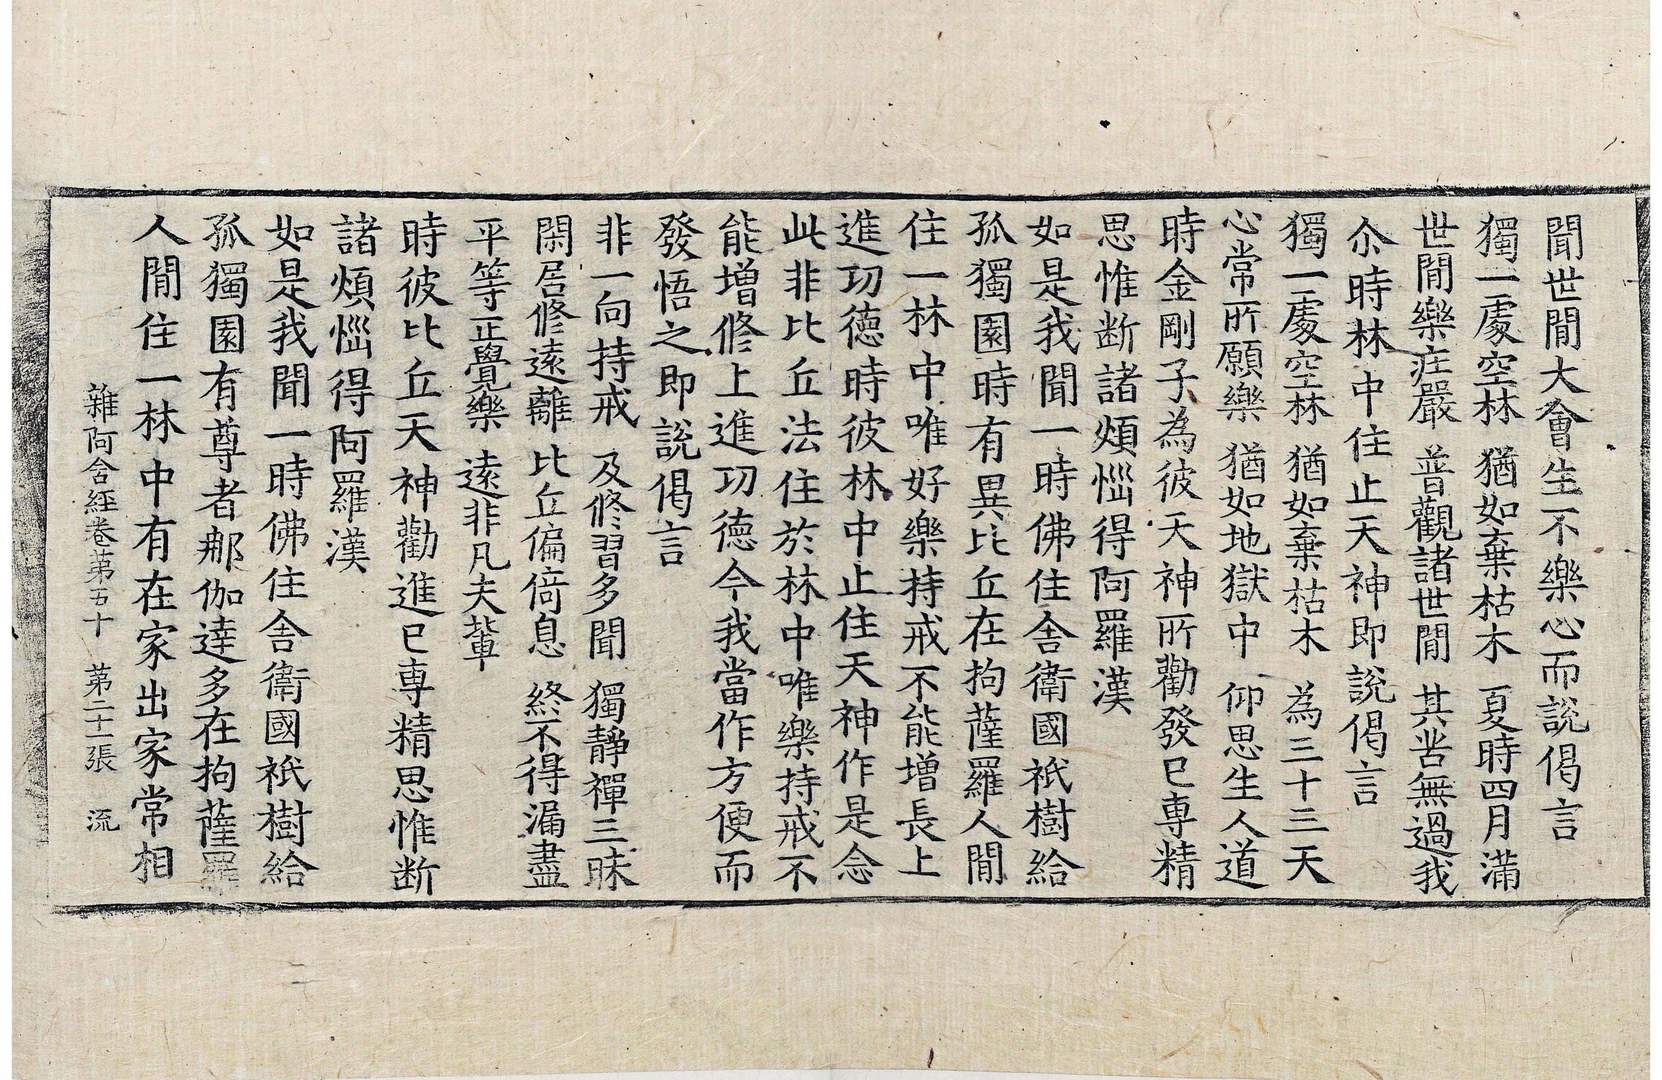 聞世間大會生不樂心而說偈言
獨一處空林 猶如棄枯木 夏時四月滿
世間樂庄嚴 普觀諸世間 其苦無過我
尒時林中住止天神即說偈言
獨一處空林 猶如棄枯木 為三十三天
心常所願樂 猶如地獄中 仰思生人道
時金剛子為彼天神所勸發已專精
思惟斷諸煩惱得阿羅漢
如是我聞一時佛住舍衛國祇樹給
孤獨園時有異比丘在拘薩羅人間
住一林中唯好樂持戒不能增長上
進功德時彼林中止住天神作是念
此非比丘法住於林中唯樂持戒不
能增修上進功德今我當作方便而
發悟之即說偈言
非一向持戒 及修習多聞 獨靜禪三昧
閑居修遠離 比丘偏倚息 終不得漏盡
平等正覺樂 遠非凡夫輩
時彼比丘天神勸進已專精思惟断
諸煩惱得阿羅漢
如是我聞一時佛住舍衛國祇樹給
孤獨園有尊者那伽達多在拘薩羅
人間住一林中有在家出家常相
雜阿含經卷苐五十 第二十二張 流